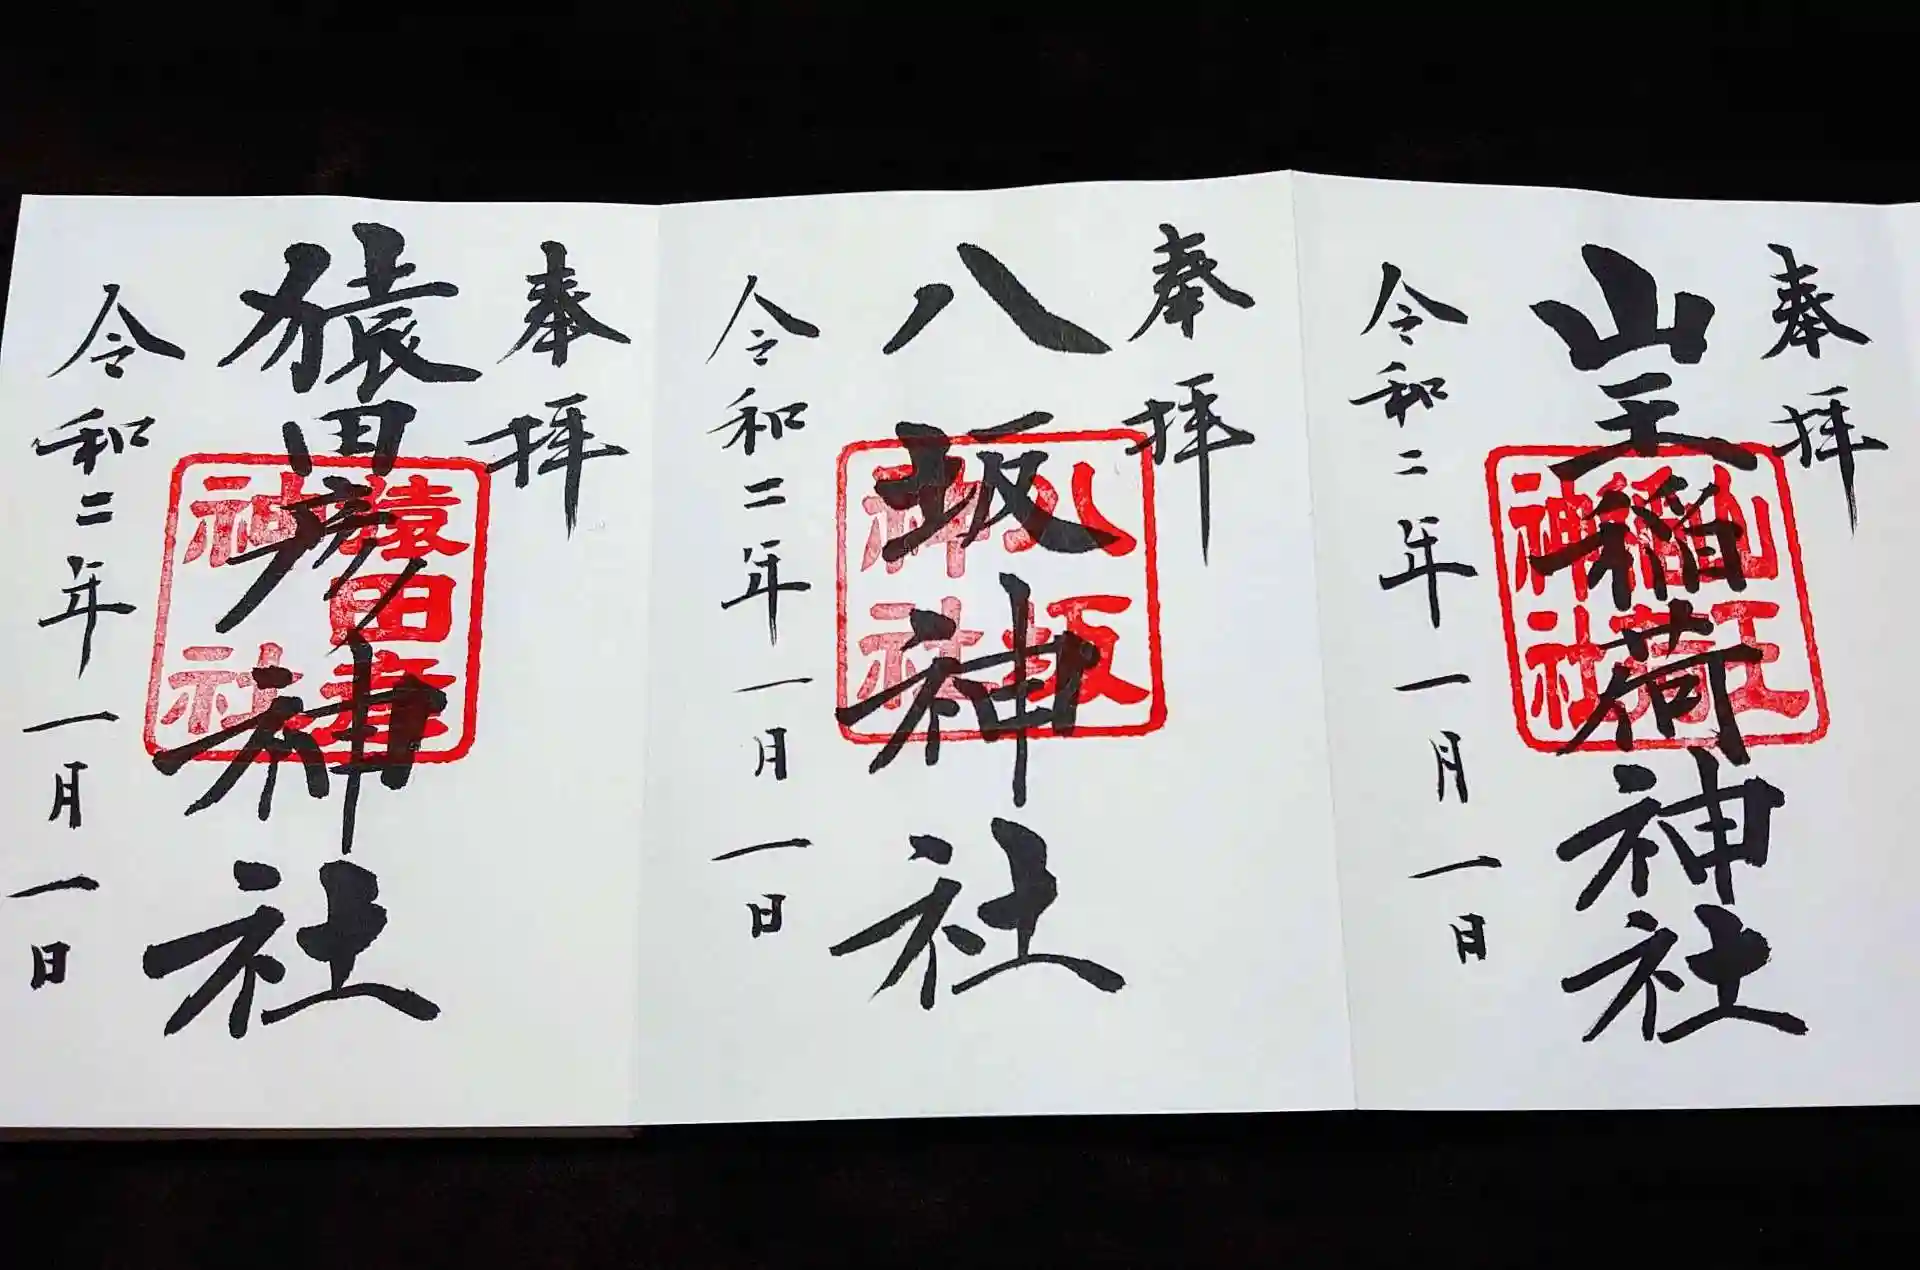 奉拝
山王稲荷神社
山王
稲荷
神社
令和二年一月一日
奉拝
八坂神社
八坂
神社
令和二年一月一日
奉拝
猿田彦神社
猿田彦
神社
令和二年一月一日